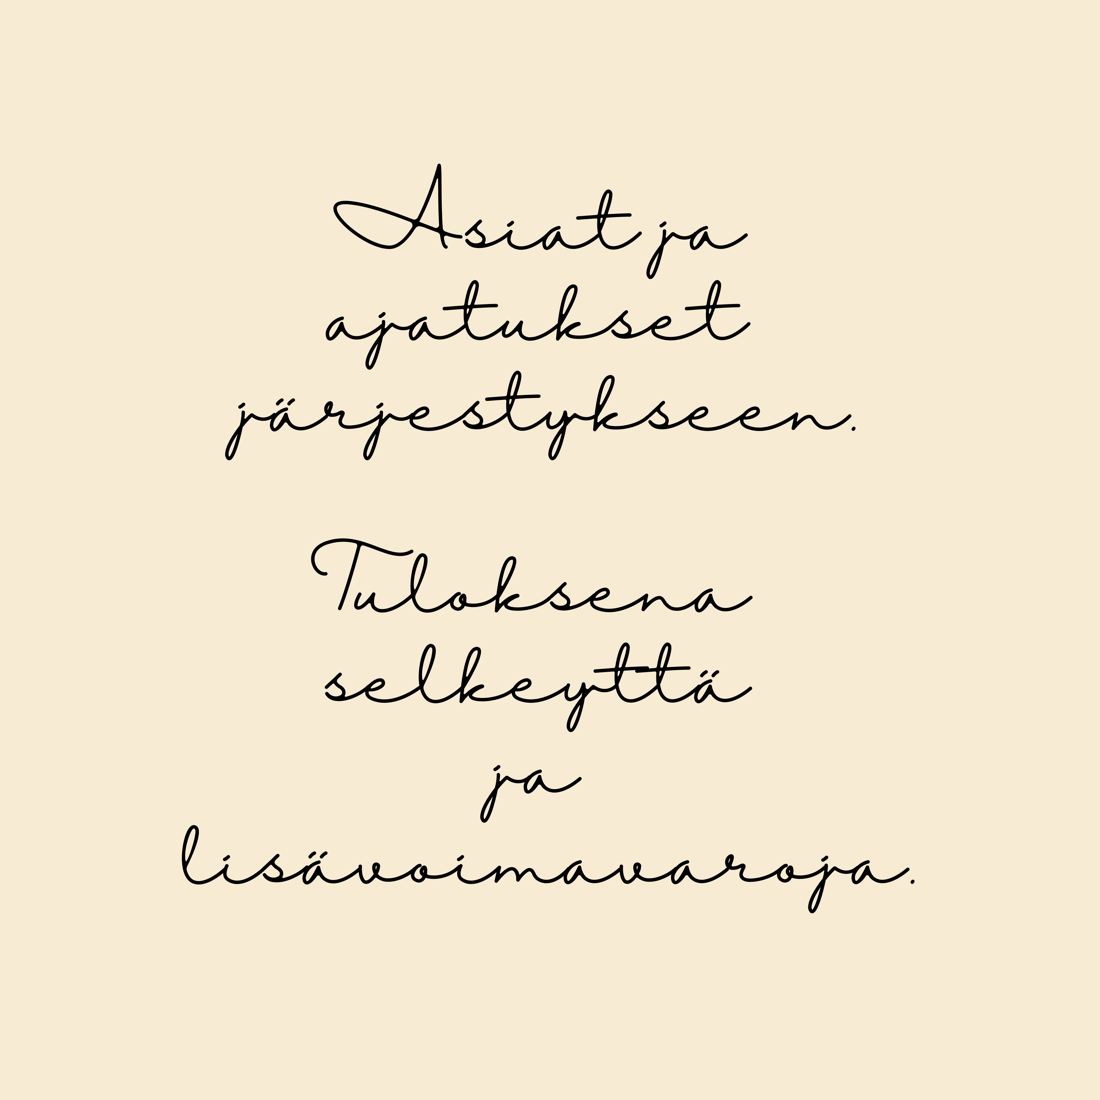 Asiat ja
ajatukset
järjestykseen.
Tuloksena
selkeyttä
ja
lisävoimavaroja.